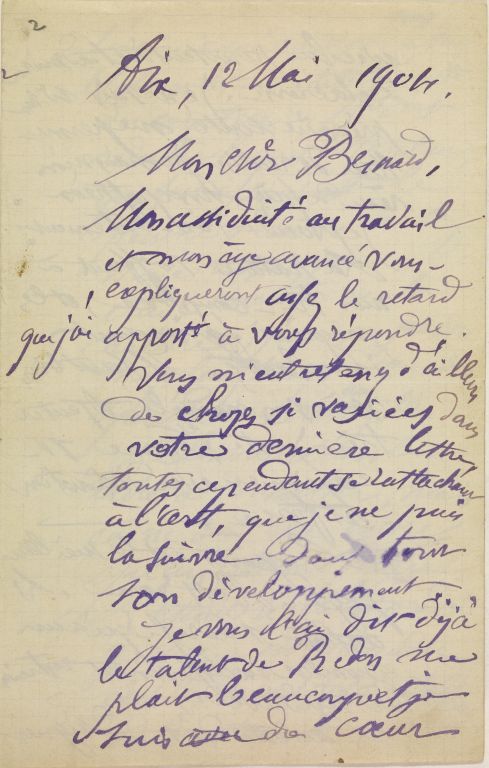 2
Aix, 12 Mai 1904.
Mon cher Bernard,
Mon assiduité au travail
et mon âge avancé vous
expliqueront assez le retard
que j'ai apporté à vous répondre.
Vous m'entretenez d'ailleurs
de choses si variées dans
votre dernière lettre,
toutes cependant se rattachant
à l'art, que je ne puis
la suivre dans tout
son développement
je vous l'ai dit déjà
le talent de Redon me
plaît beaucoup et je
suis de cœur